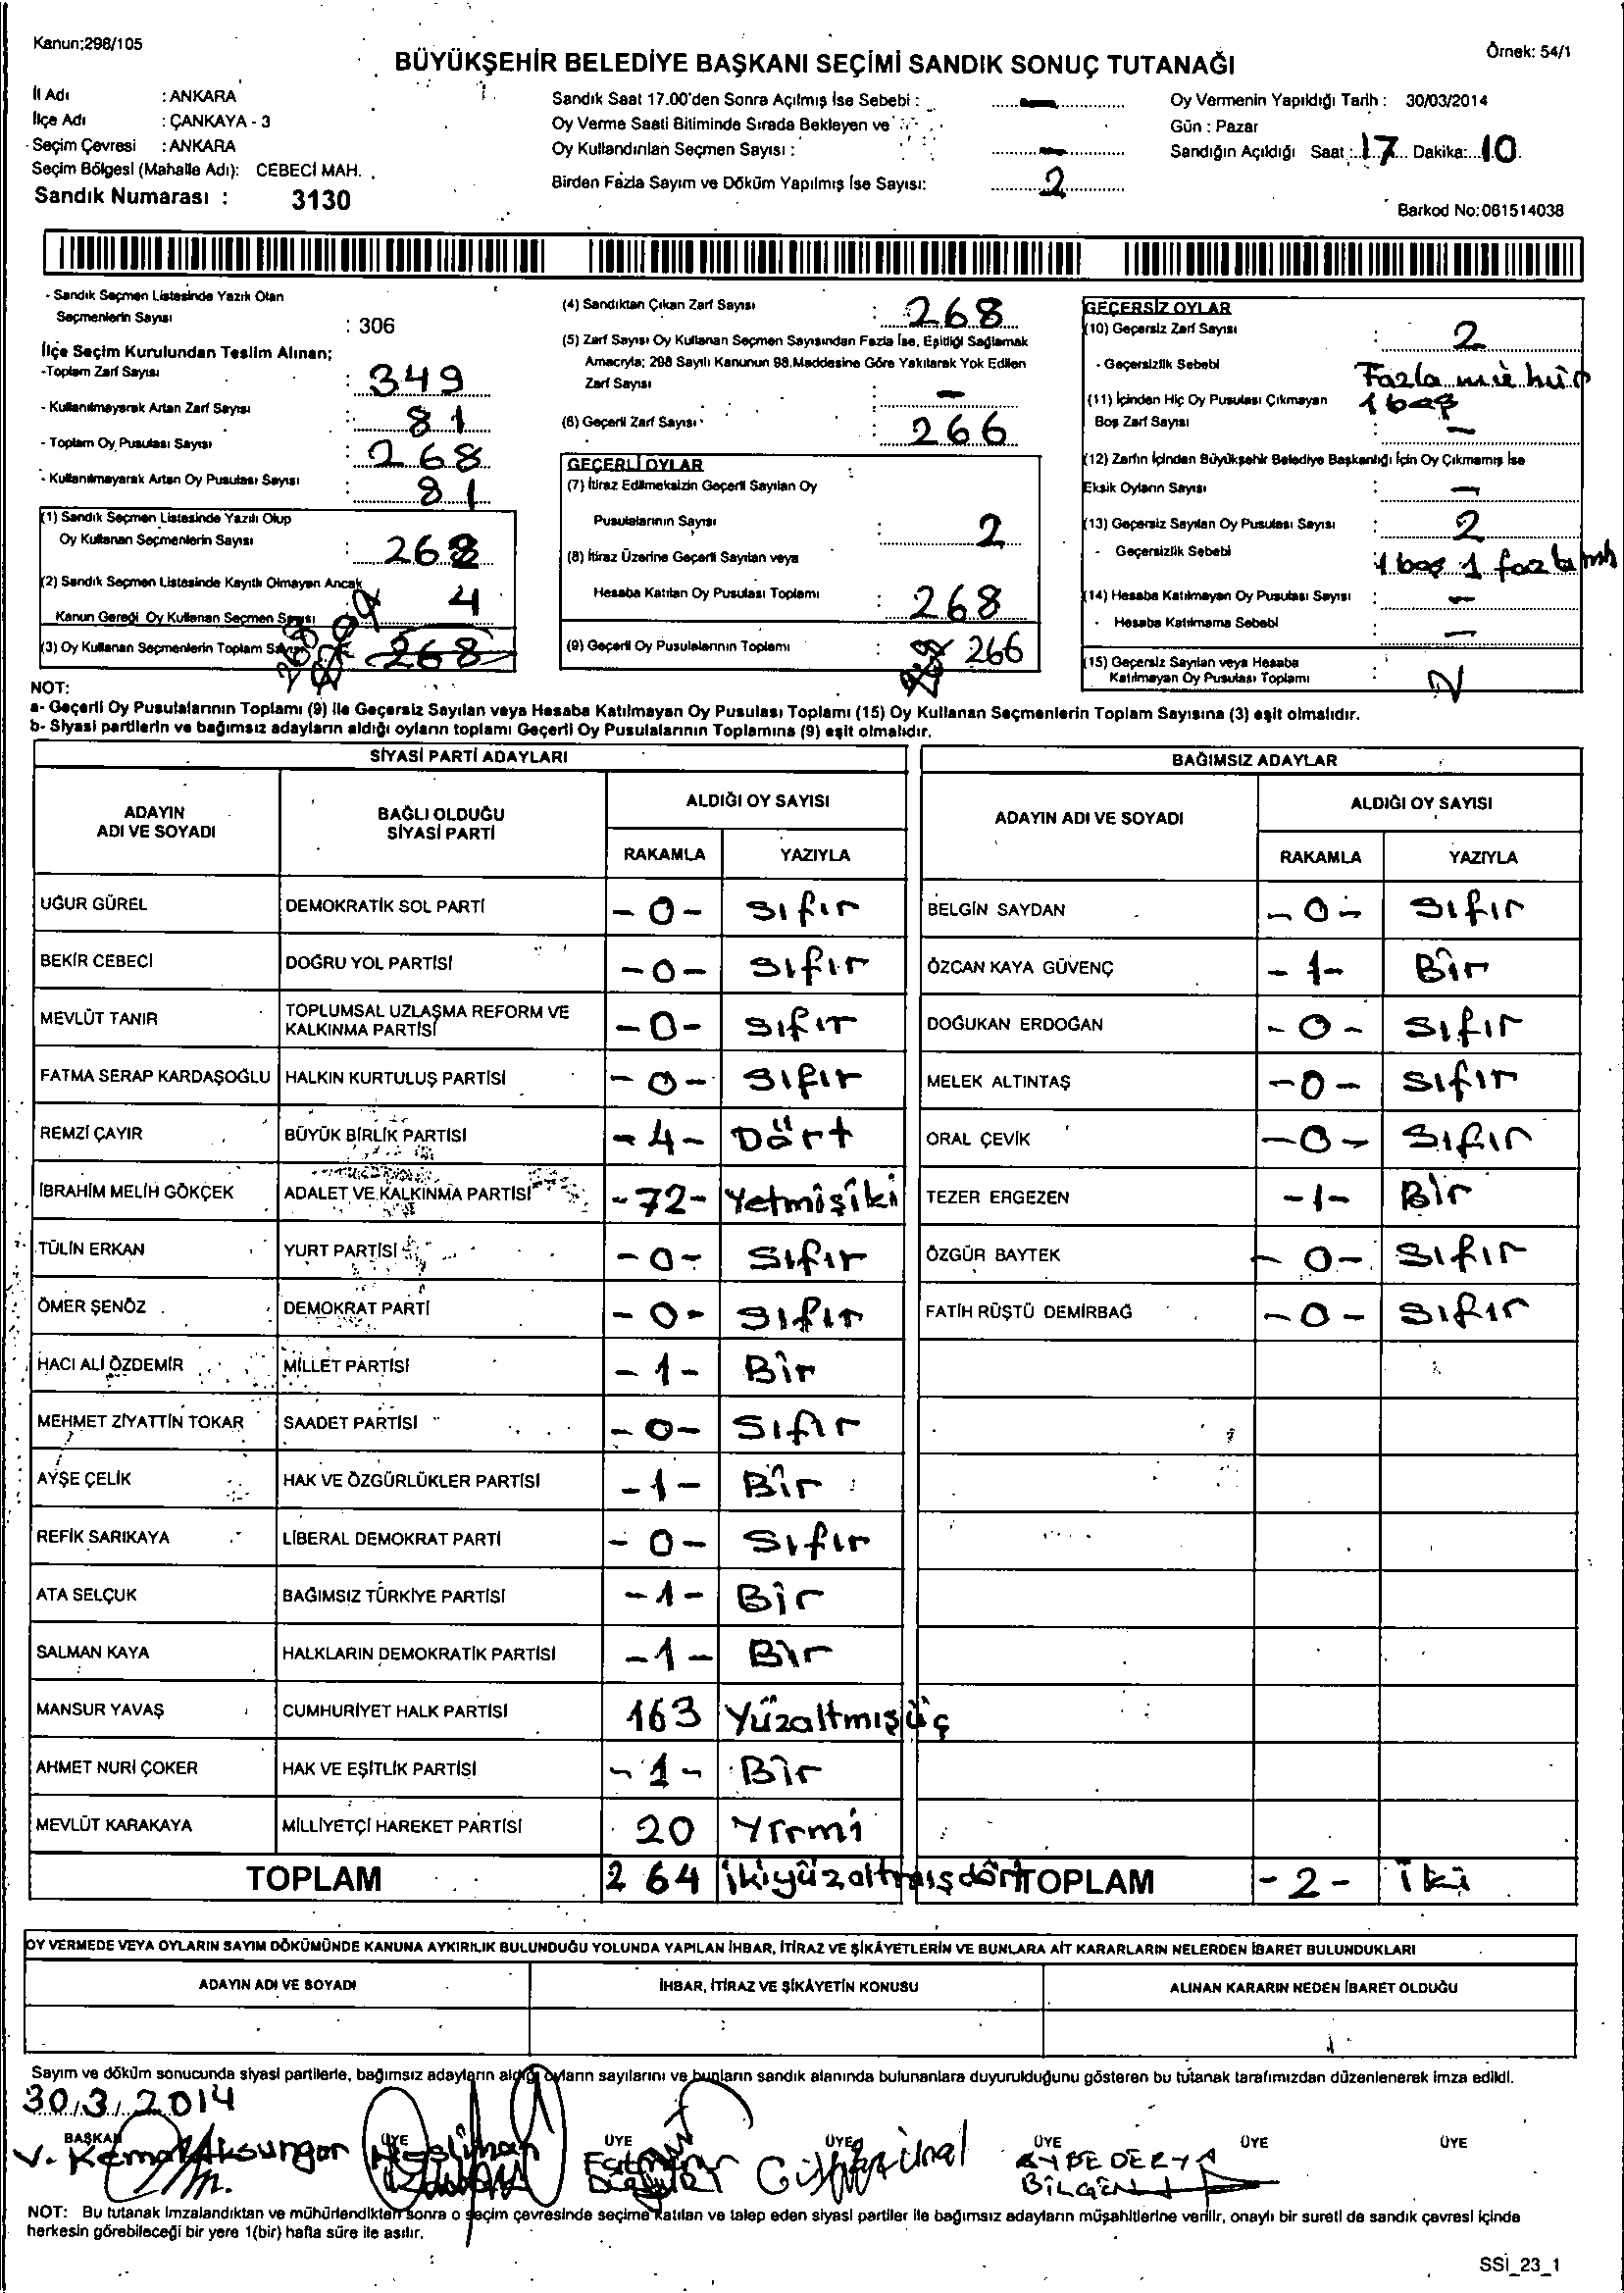 Kanun;298/105
Örnek: 54/1
BÜYÜKŞEHİR BELEDİYE BAŞKANI SEÇİMİ SANDIK SONUÇ TUTANAĞI
İl Adı : ANKARA
İlçe Adı : ÇANKAYA - 3
Seçim Çevresi : ANKARA
Seçim Bölgesi (Mahalle Adı): CEBECİ MAH.
Sandık Numarası : 3130
Sandık Saat 17.00'den Sonra Açılmış İse Sebebi : —
Oy Verme Saati Bitiminde Sırada Bekleyen ve
Oy Kullandırılan Seçmen Sayısı : —
Birden Fazla Sayım ve Döküm Yapılmış İse Sayısı: 2
Oy Vermenin Yapıldığı Tarih : 30/03/2014
Gün : Pazar
Sandığın Açıldığı Saat : 17 Dakika: 10
Barkod No:061514038
- Sandık Seçmen Listesinde Yazılı Olan
Seçmenlerin Sayısı : 306
İlçe Seçim Kurulundan Teslim Alınan;
-Toplam Zarf Sayısı : 349
- Kullanılmayarak Artan Zarf Sayısı : 81
- Toplam Oy Pusulası Sayısı : 268
- Kullanılmayarak Artan Oy Pusulası Sayısı : 81
(1) Sandık Seçmen Listesinde Yazılı Olup
Oy Kullanan Seçmenlerin Sayısı : 268
(2) Sandık Seçmen Listesinde Kayıtlı Olmayan Ancak
Kanun Gereği Oy Kullanan Seçmen Sayısı 4
(3) Oy Kullanan Seçmenlerin Toplam Sayısı 268
(4) Sandıktan Çıkan Zarf Sayısı : 268
(5) Zarf Sayısı Oy Kullanan Seçmen Sayısından Fazla İse, Eşitliği Sağlamak
Amacıyla; 298 Sayılı Kanunun 98.Maddesine Göre Yakılarak Yok Edilen
Zarf Sayısı : —
(6) Geçerli Zarf Sayısı : 266
GEÇERLİ OYLAR
(7) İtiraz Edilmeksizin Geçerli Sayılan Oy
Pusulalarının Sayısı : 2
(8) İtiraz Üzerine Geçerli Sayılan veya
Hesaba Katılan Oy Pusulası Toplamı : 268
(9) Geçerli Oy Pusulalarının Toplamı : 266
GEÇERSİZ OYLAR
(10) Geçersiz Zarf Sayısı : 2
- Geçersizlik Sebebi Fazla mühür
1 boş
(11) İçinden Hiç Oy Pusulası Çıkmayan
Boş Zarf Sayısı : —
(12) Zarfın İçinden Büyükşehir Belediye Başkanlığı İçin Oy Çıkmamış İse
Eksik Oyların Sayısı : —
(13) Geçersiz Sayılan Oy Pusulası Sayısı : 2
- Geçersizlik Sebebi 1 boş 1 fazla mh
(14) Hesaba Katılmayan Oy Pusulası Sayısı : —
- Hesaba Katılmama Sebebi : —
(15) Geçersiz Sayılan veya Hesaba
Katılmayan Oy Pusulası Toplamı : 2
NOT:
a- Geçerli Oy Pusulalarının Toplamı (9) ile Geçersiz Sayılan veya Hesaba Katılmayan Oy Pusulası Toplamı (15) Oy Kullanan Seçmenlerin Toplam Sayısına (3) eşit olmalıdır.
b- Siyasi partilerin ve bağımsız adayların aldığı oyların toplamı Geçerli Oy Pusulalarının Toplamına (9) eşit olmalıdır.
SİYASİ PARTİ ADAYLARI
ADAYIN ADI VE SOYADI BAĞLI OLDUĞU SİYASİ PARTİ ALDIĞI OY SAYISI
RAKAMLA YAZIYLA
UĞUR GÜREL DEMOKRATİK SOL PARTİ -0- Sıfır
BEKİR CEBECİ DOĞRU YOL PARTİSİ -0- Sıfır
MEVLÜT TANIR TOPLUMSAL UZLAŞMA REFORM VE KALKINMA PARTİSİ -0- Sıfır
FATMA SERAP KARDAŞOĞLU HALKIN KURTULUŞ PARTİSİ -0- Sıfır
REMZİ ÇAYIR BÜYÜK BİRLİK PARTİSİ -4- Dört
İBRAHİM MELİH GÖKÇEK ADALET VE KALKINMA PARTİSİ -72- Yetmişiki
TÜLİN ERKAN YURT PARTİSİ -0- Sıfır
ÖMER ŞENÖZ DEMOKRAT PARTİ -0- Sıfır
HACI ALİ ÖZDEMİR MİLLET PARTİSİ -1- Bir
MEHMET ZİYATTİN TOKAR SAADET PARTİSİ -0- Sıfır
AYŞE ÇELİK HAK VE ÖZGÜRLÜKLER PARTİSİ -1- Bir
REFİK SARIKAYA LİBERAL DEMOKRAT PARTİ -0- Sıfır
ATA SELÇUK BAĞIMSIZ TÜRKİYE PARTİSİ -1- Bir
SALMAN KAYA HALKLARIN DEMOKRATİK PARTİSİ -1- Bir
MANSUR YAVAŞ CUMHURİYET HALK PARTİSİ 163 Yüzaltmışüç
AHMET NURİ ÇOKER HAK VE EŞİTLİK PARTİSİ -1- Bir
MEVLÜT KARAKAYA MİLLİYETÇİ HAREKET PARTİSİ 20 Yirmi
TOPLAM 264 İkiyüzaltmışdört
BAĞIMSIZ ADAYLAR
ADAYIN ADI VE SOYADI ALDIĞI OY SAYISI
RAKAMLA YAZIYLA
BELGİN SAYDAN -0- Sıfır
ÖZCAN KAYA GÜVENÇ -1- Bir
DOĞUKAN ERDOĞAN -0- Sıfır
MELEK ALTINTAŞ -0- Sıfır
ORAL ÇEVİK -0- Sıfır
TEZER ERGEZEN -1- Bir
ÖZGÜR BAYTEK -0- Sıfır
FATİH RÜŞTÜ DEMİRBAĞ -0- Sıfır
TOPLAM -2- İki
OY VERMEDE VEYA OYLARIN SAYIM DÖKÜMÜNDE KANUNA AYKIRILIK BULUNDUĞU YOLUNDA YAPILAN İHBAR, İTİRAZ VE ŞİKÂYETLERİN VE BUNLARA AİT KARARLARIN NELERDEN İBARET BULUNDUKLARI
ADAYIN ADI VE SOYADI İHBAR, İTİRAZ VE ŞİKÂYETİN KONUSU ALINAN KARARIN NEDEN İBARET OLDUĞU
Sayım ve döküm sonucunda siyasi partilerle, bağımsız adayların aldığı oyların sayılarını ve bunların sandık alanında bulunanlara duyurulduğunu gösteren bu tutanak tarafımızdan düzenlenerek imza edildi.
30.3.2014
BAŞKAN ÜYE ÜYE ÜYE ÜYE ÜYE ÜYE
V. Kemal Aksungar
AYBE DERYA
BİLGEN
NOT: Bu tutanak imzalandıktan ve mühürlendikten sonra o seçim çevresinde seçime katılan ve talep eden siyasi partiler ile bağımsız adayların müşahitlerine verilir, onaylı bir sureti de sandık çevresi içinde
herkesin görebileceği bir yere 1(bir) hafta süre ile asılır.
SSİ_23_1